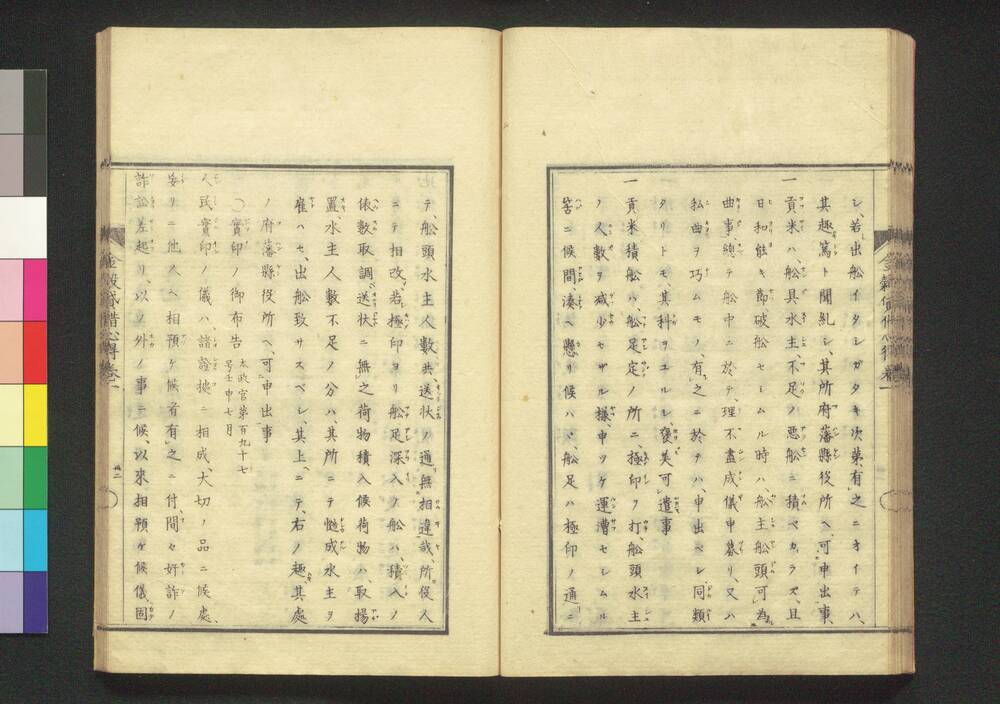 シ、若出船イタシガタキ次第、有之ニオイテハ、
其趣篤ト聞糺シ、其所府藩縣役所ヘ、可申出事
一貢米ハ、船具水主、不足ノ悪船ニ積ベカラズ、且
日和能キ節破船セシムル時ハ、船主船頭可為
曲事、總テ船中ニ於テ、理不盡成儀申募リ、又ハ
私曲ヲ巧ムモノ、有之ニ於テハ申出ベシ、同類
タリトモ、其科ヲユルシ褒美可遣事
一貢米積船ハ、船足定ノ所ニ、極印ヲ打、船頭水主
ノ人数ヲ減少セザル様、申ツケ運漕セシムル
筈ニ候間、湊ヘ懸リ候ハヾ、船足ハ極印ノ通ニ
テ、船頭水主人數共送状ノ通、無相違哉、所役人
ニテ相改、若極印ヨリ船足深入ノ船ハ、積入ノ
俵數取調、送状ニ無之荷物積入候荷物ハ、取揚
置、水主人數不足ノ分ハ其所ニテ慥成水主ヲ
雇ハセ、出船致サスベシ、其上ニテ、右ノ趣、其處
ノ府藩縣役所ヘ、可申出事
〇實印ノ御布告
太政官第百九十七
号壬申七月
人民實印ノ儀ハ、諸證拠ニ相成、大切ノ品ニ候處、
妄リニ他人ヘ相預ケ候者有之ニ付、間々奸詐ノ
訴訟差起リ、以ノ外ノ事ニ候、以來相預ケ候儀固